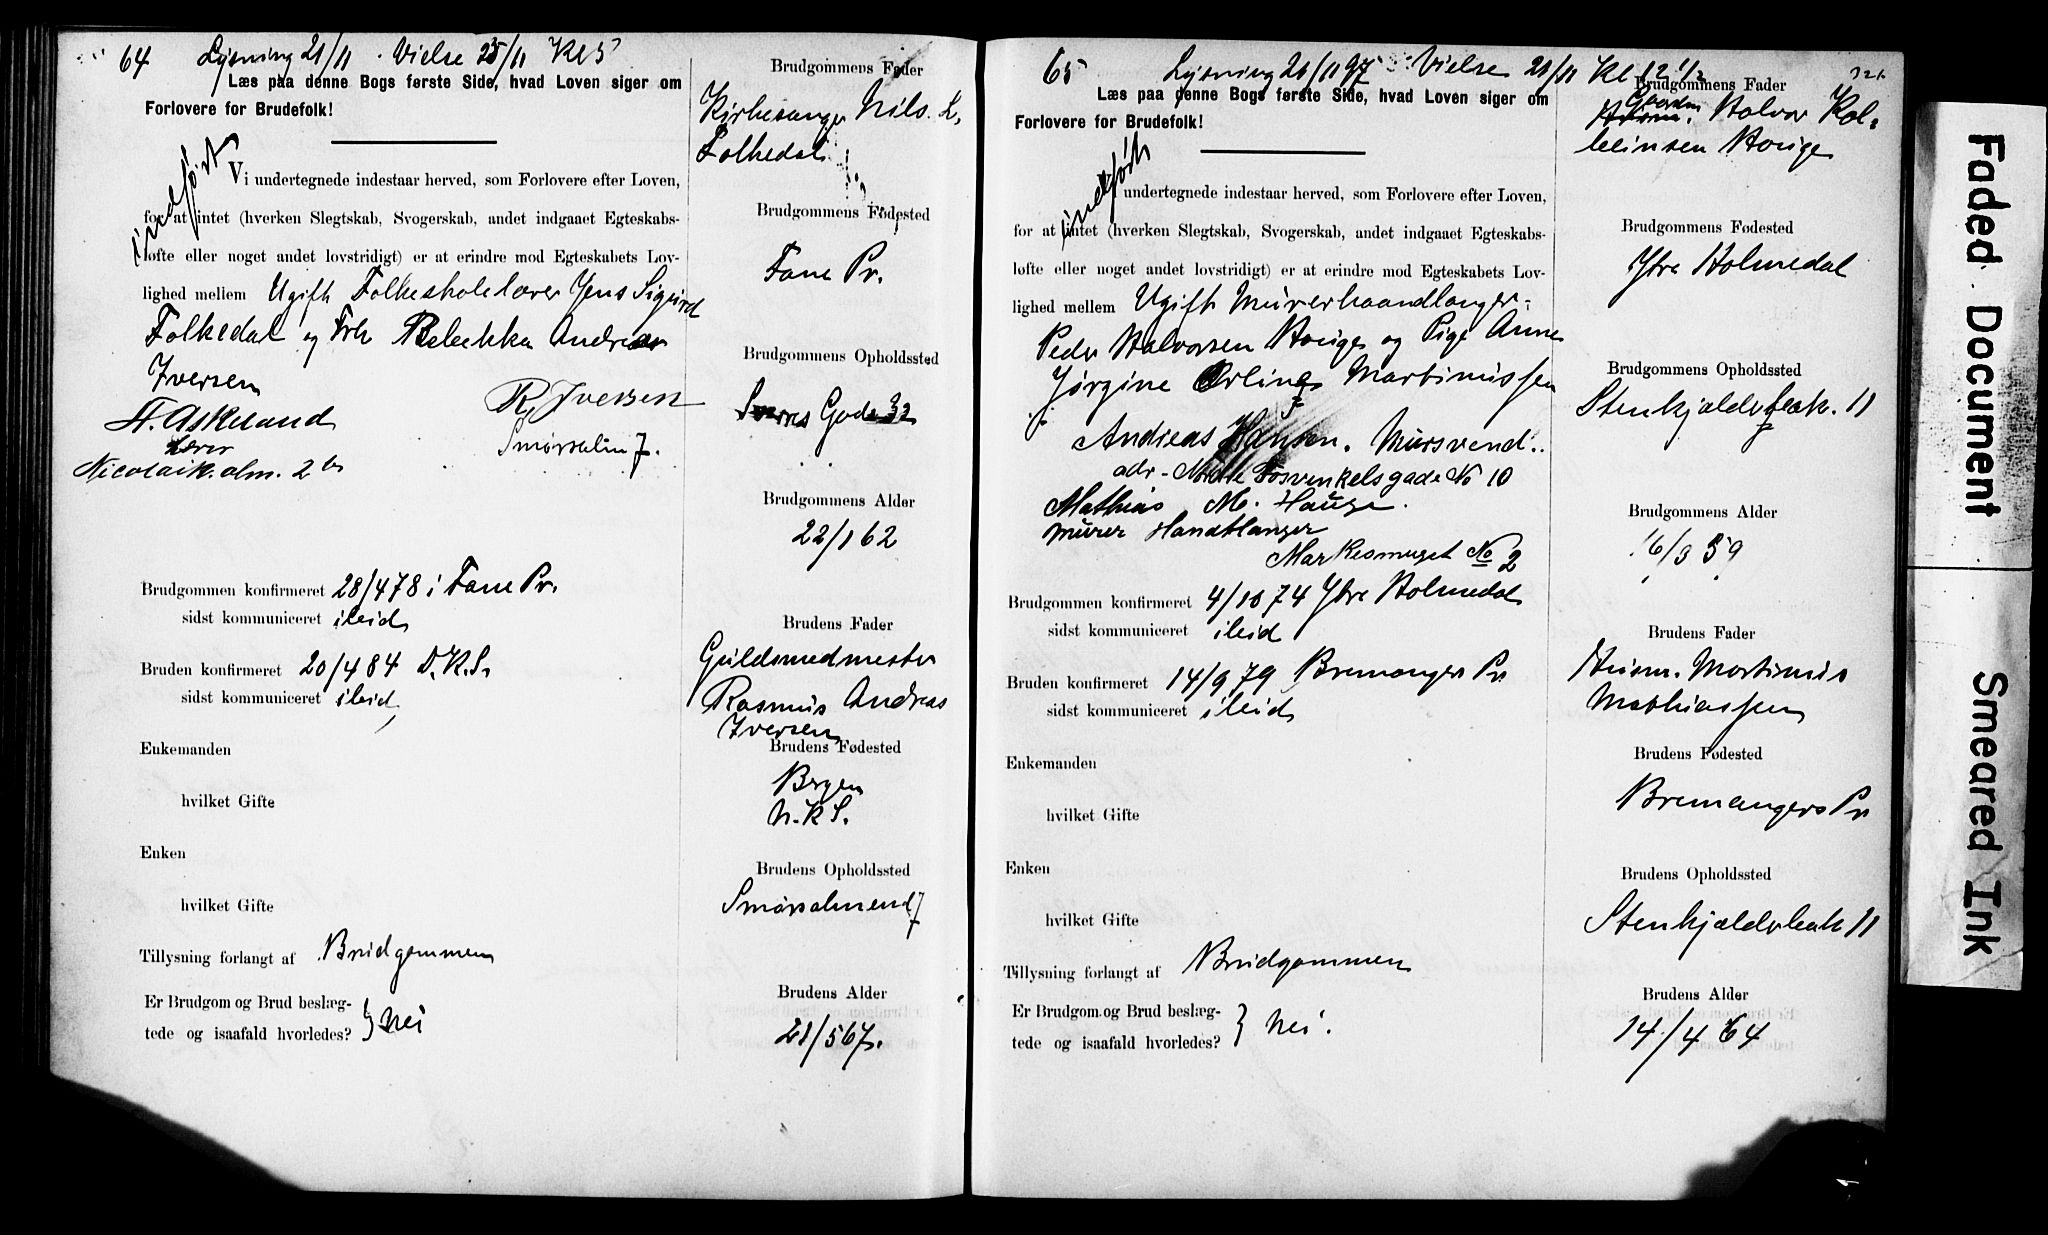 64 Lysning 21/11 . Vielse 25/11 Kl 5
Læs paa denne Bogs første Side, hvad Loven siger om
Forlovere for Brudefolk!
indført
Vi undertegnede indestaar herved, som Forlovere efter Loven,
for at intet (hverken Slegtskab, Svogerskab, andet indgaaet Egteskabs-
løfte eller noget andet lovstridigt) er at erindre mod Egteskabets Lov-
lighed mellem Ugift Folkeskolelærer Jens Sigurd
Folkedal og Frk Rebekka Andrea
Iversen
A. Askeland R. Iversen
Lærer Smørsalm 7.
Nicolaik. alm. 2
Brudgommen konfirmeret 28/4 78 i Fane Pr.
sidst kommuniceret ileid
Bruden konfirmeret 20/4 84 D.K.S.
sidst kommuniceret ileid
Enkemanden
hvilket Gifte
Enken
hvilket Gifte
Tillysning forlangt af Brudgommen
Er Brudgom og Brud beslæg-
tede og isaafald hvorledes? } Nei
Brudgommens Fader
Kirkesanger Nils L.
Folkedal
Brudgommens Fødested
Fane Pr.
Brudgommens Opholdssted
Sverres Gade 32
Brudgommens Alder
22/1 62
Brudens Fader
Guldsmedmester
Rasmus Andreas
Iversen
Brudens Fødested
Bergen
N.K.S.
Brudens Opholdssted
Smørsalmend 7
Brudens Alder
21/5 67.
65 Lysning 21/11 97 Vielse 21/11 Kl 12 1/2
Læs paa denne Bogs første Side, hvad Loven siger om
Forlovere for Brudefolk!
indført
undertegnede indestaar herved, som Forlovere efter Loven,
for at intet (hverken Slegtskab, Svogerskab, andet indgaaet Egteskabs-
løfte eller noget andet lovstridigt) er at erindre mod Egteskabets Lov-
lighed mellem Ugift Murerhaandlanger
Peder Halvorsen Houge og Pige Anne
Jørgine Erline Martinussen
Andreas Hansen. Mursvend.
adr. Fosvinkelsgade No 10
Mathias M. Hauge.
murer Handtlanger
Markesmuget No 2
Brudgommen konfirmeret 4/10 74 Ytre Holmedal
sidst kommuniceret ileid
Bruden konfirmeret 14/9 79 Bremanger Pr
sidst kommuniceret ileid
Enkemanden
hvilket Gifte
Enken
hvilket Gifte
Tillysning forlangt af Brudgommen
Er Brudgom og Brud beslæg-
tede og isaafald hvorledes? } Nei.
Brudgommens Fader
Gaardm. Halvor Kol-
beinsen Houge
Brudgommens Fødested
Ytre Holmedal
Brudgommens Opholdssted
Stenkjeldersbak. 11
Brudgommens Alder
16/3 59
Brudens Fader
Husm. Martinus
Mathiassen
Brudens Fødested
Bremangers Pr
Brudens Opholdssted
Stenkjeldersbak 11
Brudens Alder
14/4 64
Faded Document
Smeared Ink